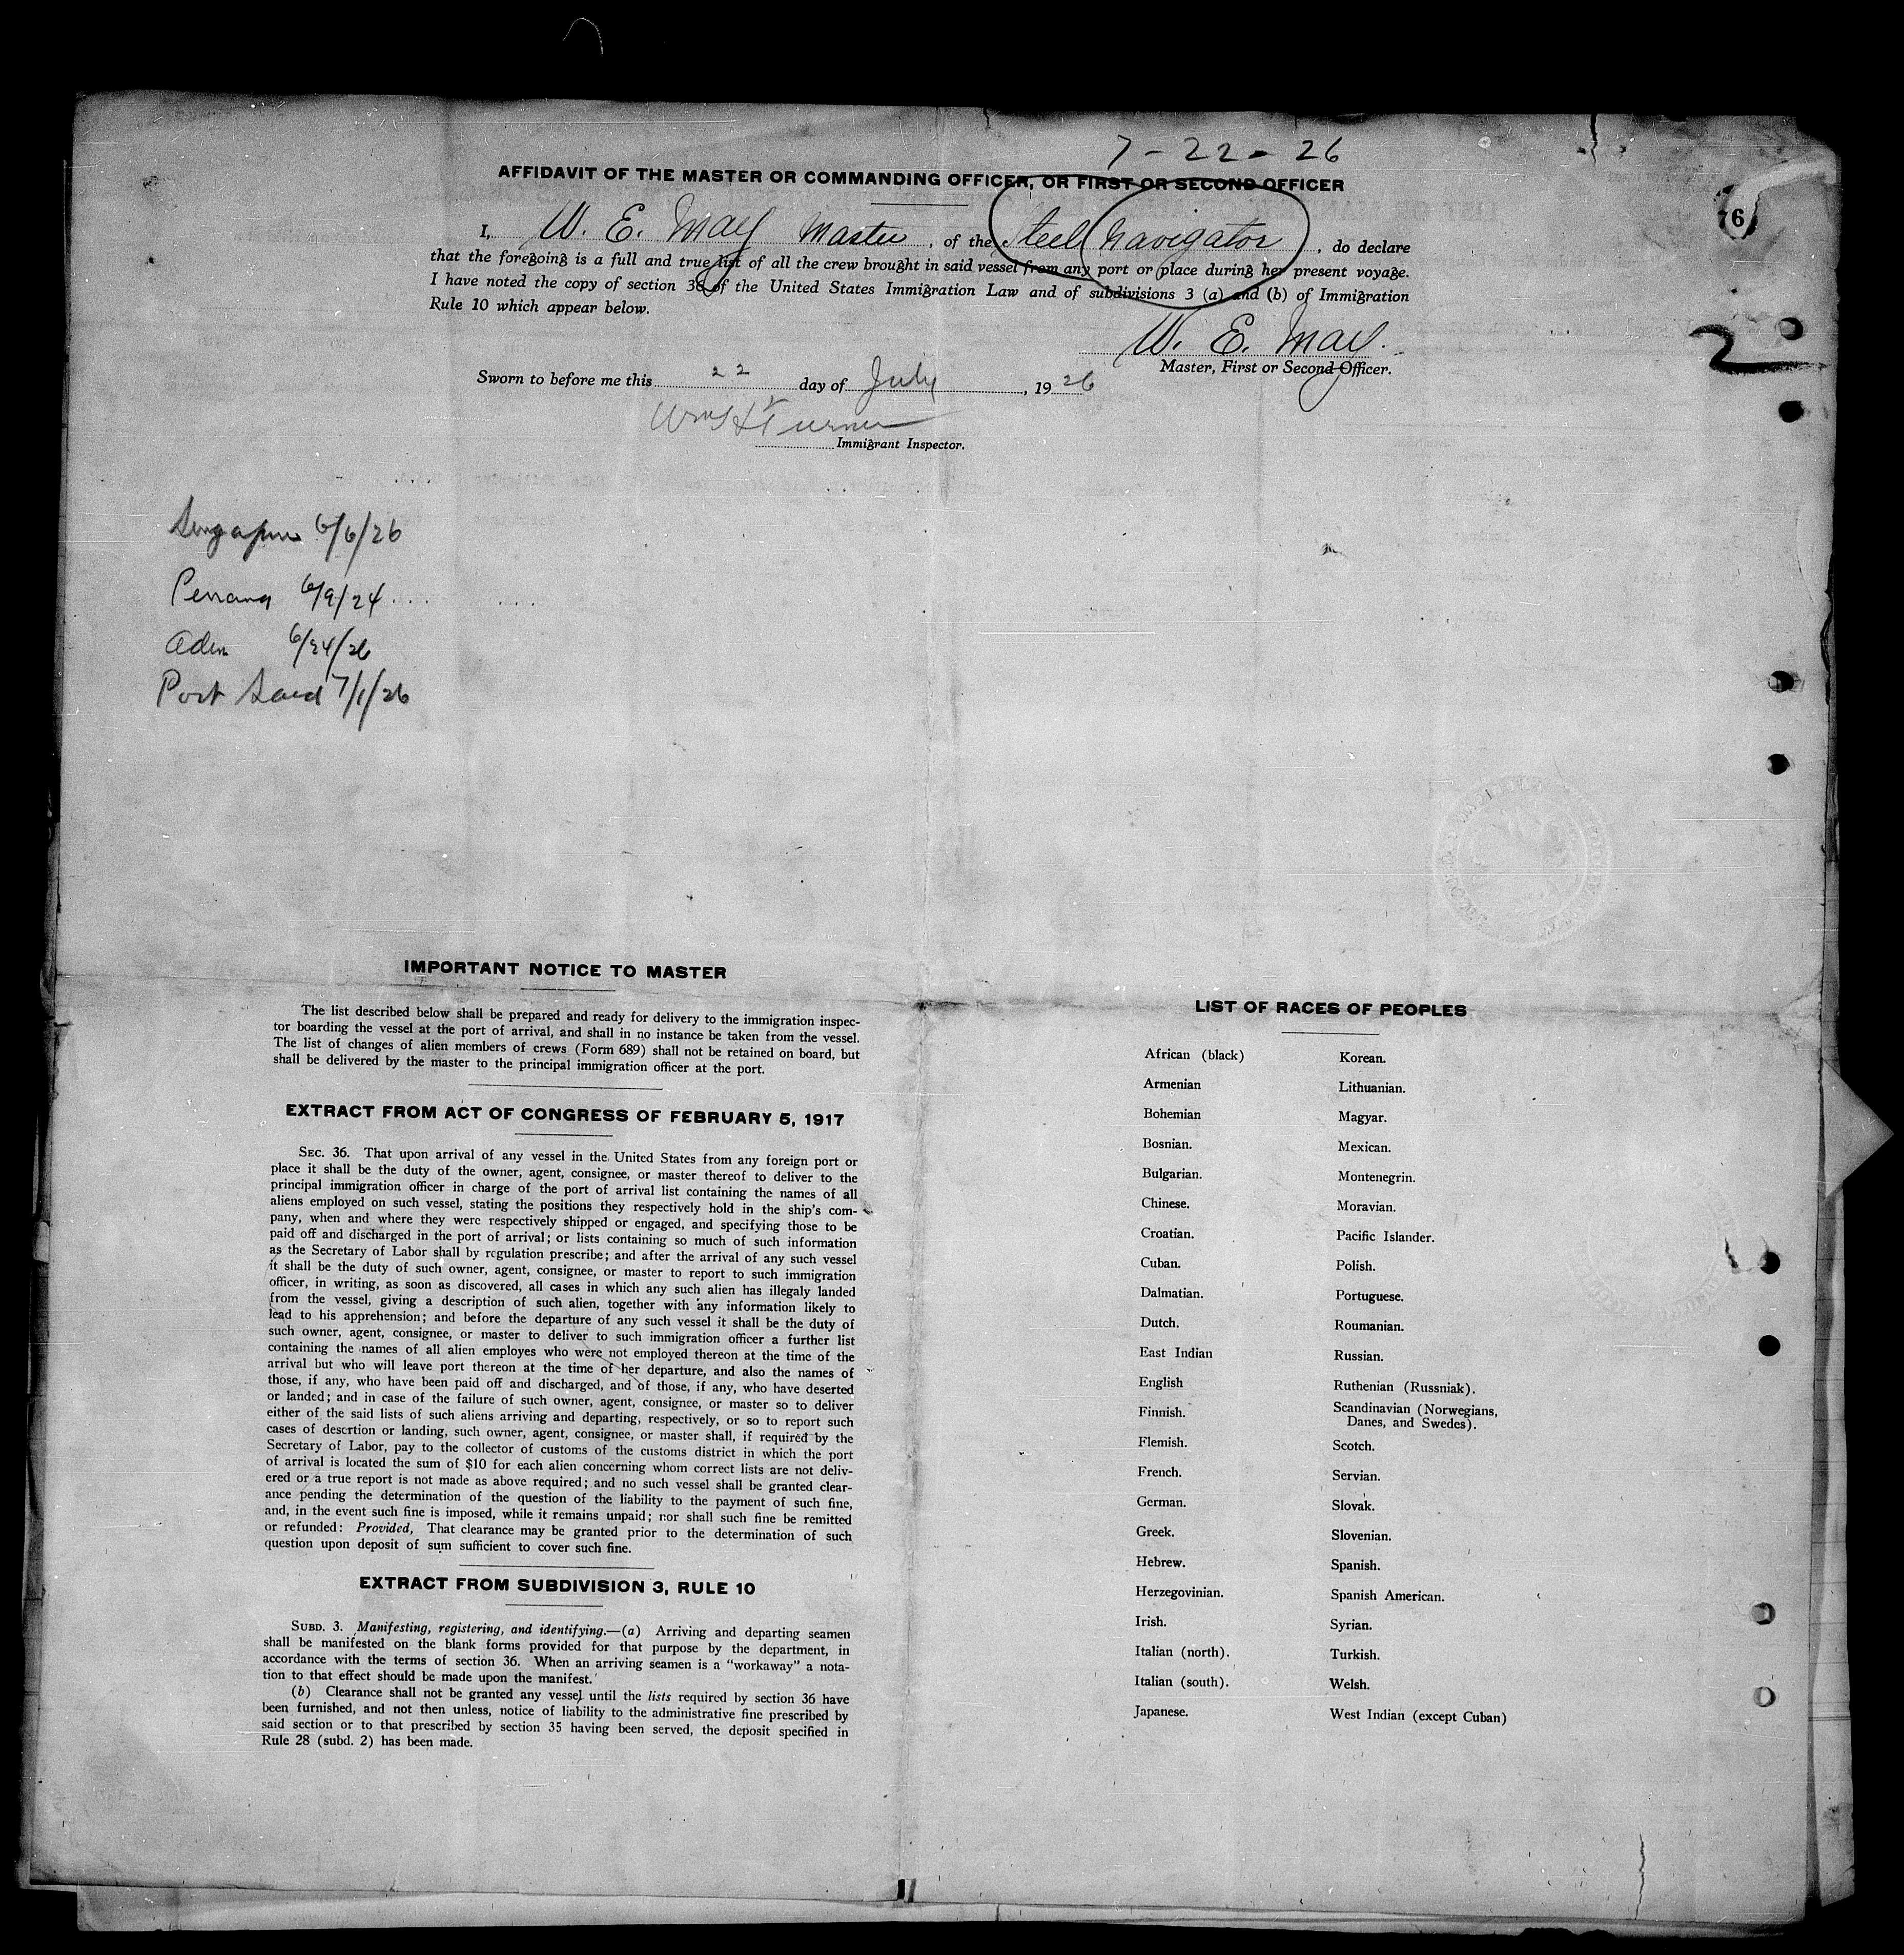 7-22-26
AFFIDAVIT OF THE MASTER OR COMMANDING OFFICER, OR FIRST OR SECOND OFFICER
76
I, W. E. May Master, of the Steel Navigator, do declare
that the foregoing is a full and true list of all the crew brought in said vessel from any port or place during her present voyage.
I have noted the copy of section 36 of the United States Immigration Law and of subdivisions 3 (a) and (b) of Immigration
Rule 10 which appear below.
W. E. May.
2
Master, First or Second Officer.
Sworn to before me this 22 day of July, 1926
Wm H Turner
Immigrant Inspector.
Singapore 6/6/26
Penang 6/9/24
Aden 6/24/26
Port Said 7/1/26
IMPORTANT NOTICE TO MASTER
The list described below shall be prepared and ready for delivery to the immigration inspec-
tor boarding the vessel at the port of arrival, and shall in no instance be taken from the vessel.
The list of changes of alien members of crews (Form 689) shall not be retained on board, but
shall be delivered by the master to the principal immigration officer at the port.
EXTRACT FROM ACT OF CONGRESS OF FEBRUARY 5, 1917
SEC. 36. That upon arrival of any vessel in the United States from any foreign port or
place it shall be the duty of the owner, agent, consignee, or master thereof to deliver to the
principal immigration officer in charge of the port of arrival list containing the names of all
aliens employed on such vessel, stating the positions they respectively hold in the ship's com-
pany, when and where they were respectively shipped or engaged, and specifying those to be
paid off and discharged in the port of arrival; or lists containing so much of such information
as the Secretary of Labor shall by regulation prescribe; and after the arrival of any such vessel
it shall be the duty of such owner, agent, consignee, or master to report to such immigration
officer, in writing, as soon as discovered, all cases in which any such alien has illegaly landed
from the vessel, giving a description of such alien, together with any information likely to
lead to his apprehension; and before the departure of any such vessel it shall be the duty of
such owner, agent, consignee, or master to deliver to such immigration officer a further list
containing the names of all alien employes who were not employed thereon at the time of the
arrival but who will leave port thereon at the time of her departure, and also the names of
those, if any, who have been paid off and discharged, and of those, if any, who have deserted
or landed; and in case of the failure of such owner, agent, consignee, or master so to deliver
either of the said lists of such aliens arriving and departing, respectively, or so to report such
cases of desertion or landing, such owner, agent, consignee, or master shall, if required by the
Secretary of Labor, pay to the collector of customs of the customs district in which the port
of arrival is located the sum of $10 for each alien concerning whom correct lists are not deliv-
ered or a true report is not made as above required; and no such vessel shall be granted clear-
ance pending the determination of the question of the liability to the payment of such fine,
and, in the event such fine is imposed, while it remains unpaid; nor shall such fine be remitted
or refunded: Provided, That clearance may be granted prior to the determination of such
question upon deposit of sum sufficient to cover such fine.
EXTRACT FROM SUBDIVISION 3, RULE 10
SUBD. 3. Manifesting, registering, and identifying.—(a) Arriving and departing seamen
shall be manifested on the blank forms provided for that purpose by the department, in
accordance with the terms of section 36. When an arriving seamen is a "workaway" a nota-
tion to that effect should be made upon the manifest.
(b) Clearance shall not be granted any vessel until the lists required by section 36 have
been furnished, and not then unless, notice of liability to the administrative fine prescribed by
said section or to that prescribed by section 35 having been served, the deposit specified in
Rule 28 (subd. 2) has been made.
LIST OF RACES OF PEOPLES
African (black)
Armenian
Bohemian
Bosnian.
Bulgarian.
Chinese.
Croatian.
Cuban.
Dalmatian.
Dutch.
East Indian
English
Finnish.
Flemish.
French.
German.
Greek.
Hebrew.
Herzegovinian.
Irish.
Italian (north).
Italian (south).
Japanese.
Korean.
Lithuanian.
Magyar.
Mexican.
Montenegrin.
Moravian.
Pacific Islander.
Polish.
Portuguese.
Roumanian.
Russian.
Ruthenian (Russniak).
Scandinavian (Norwegians,
Danes, and Swedes).
Scotch.
Servian.
Slovak.
Slovenian.
Spanish.
Spanish American.
Syrian.
Turkish.
Welsh.
West Indian (except Cuban)